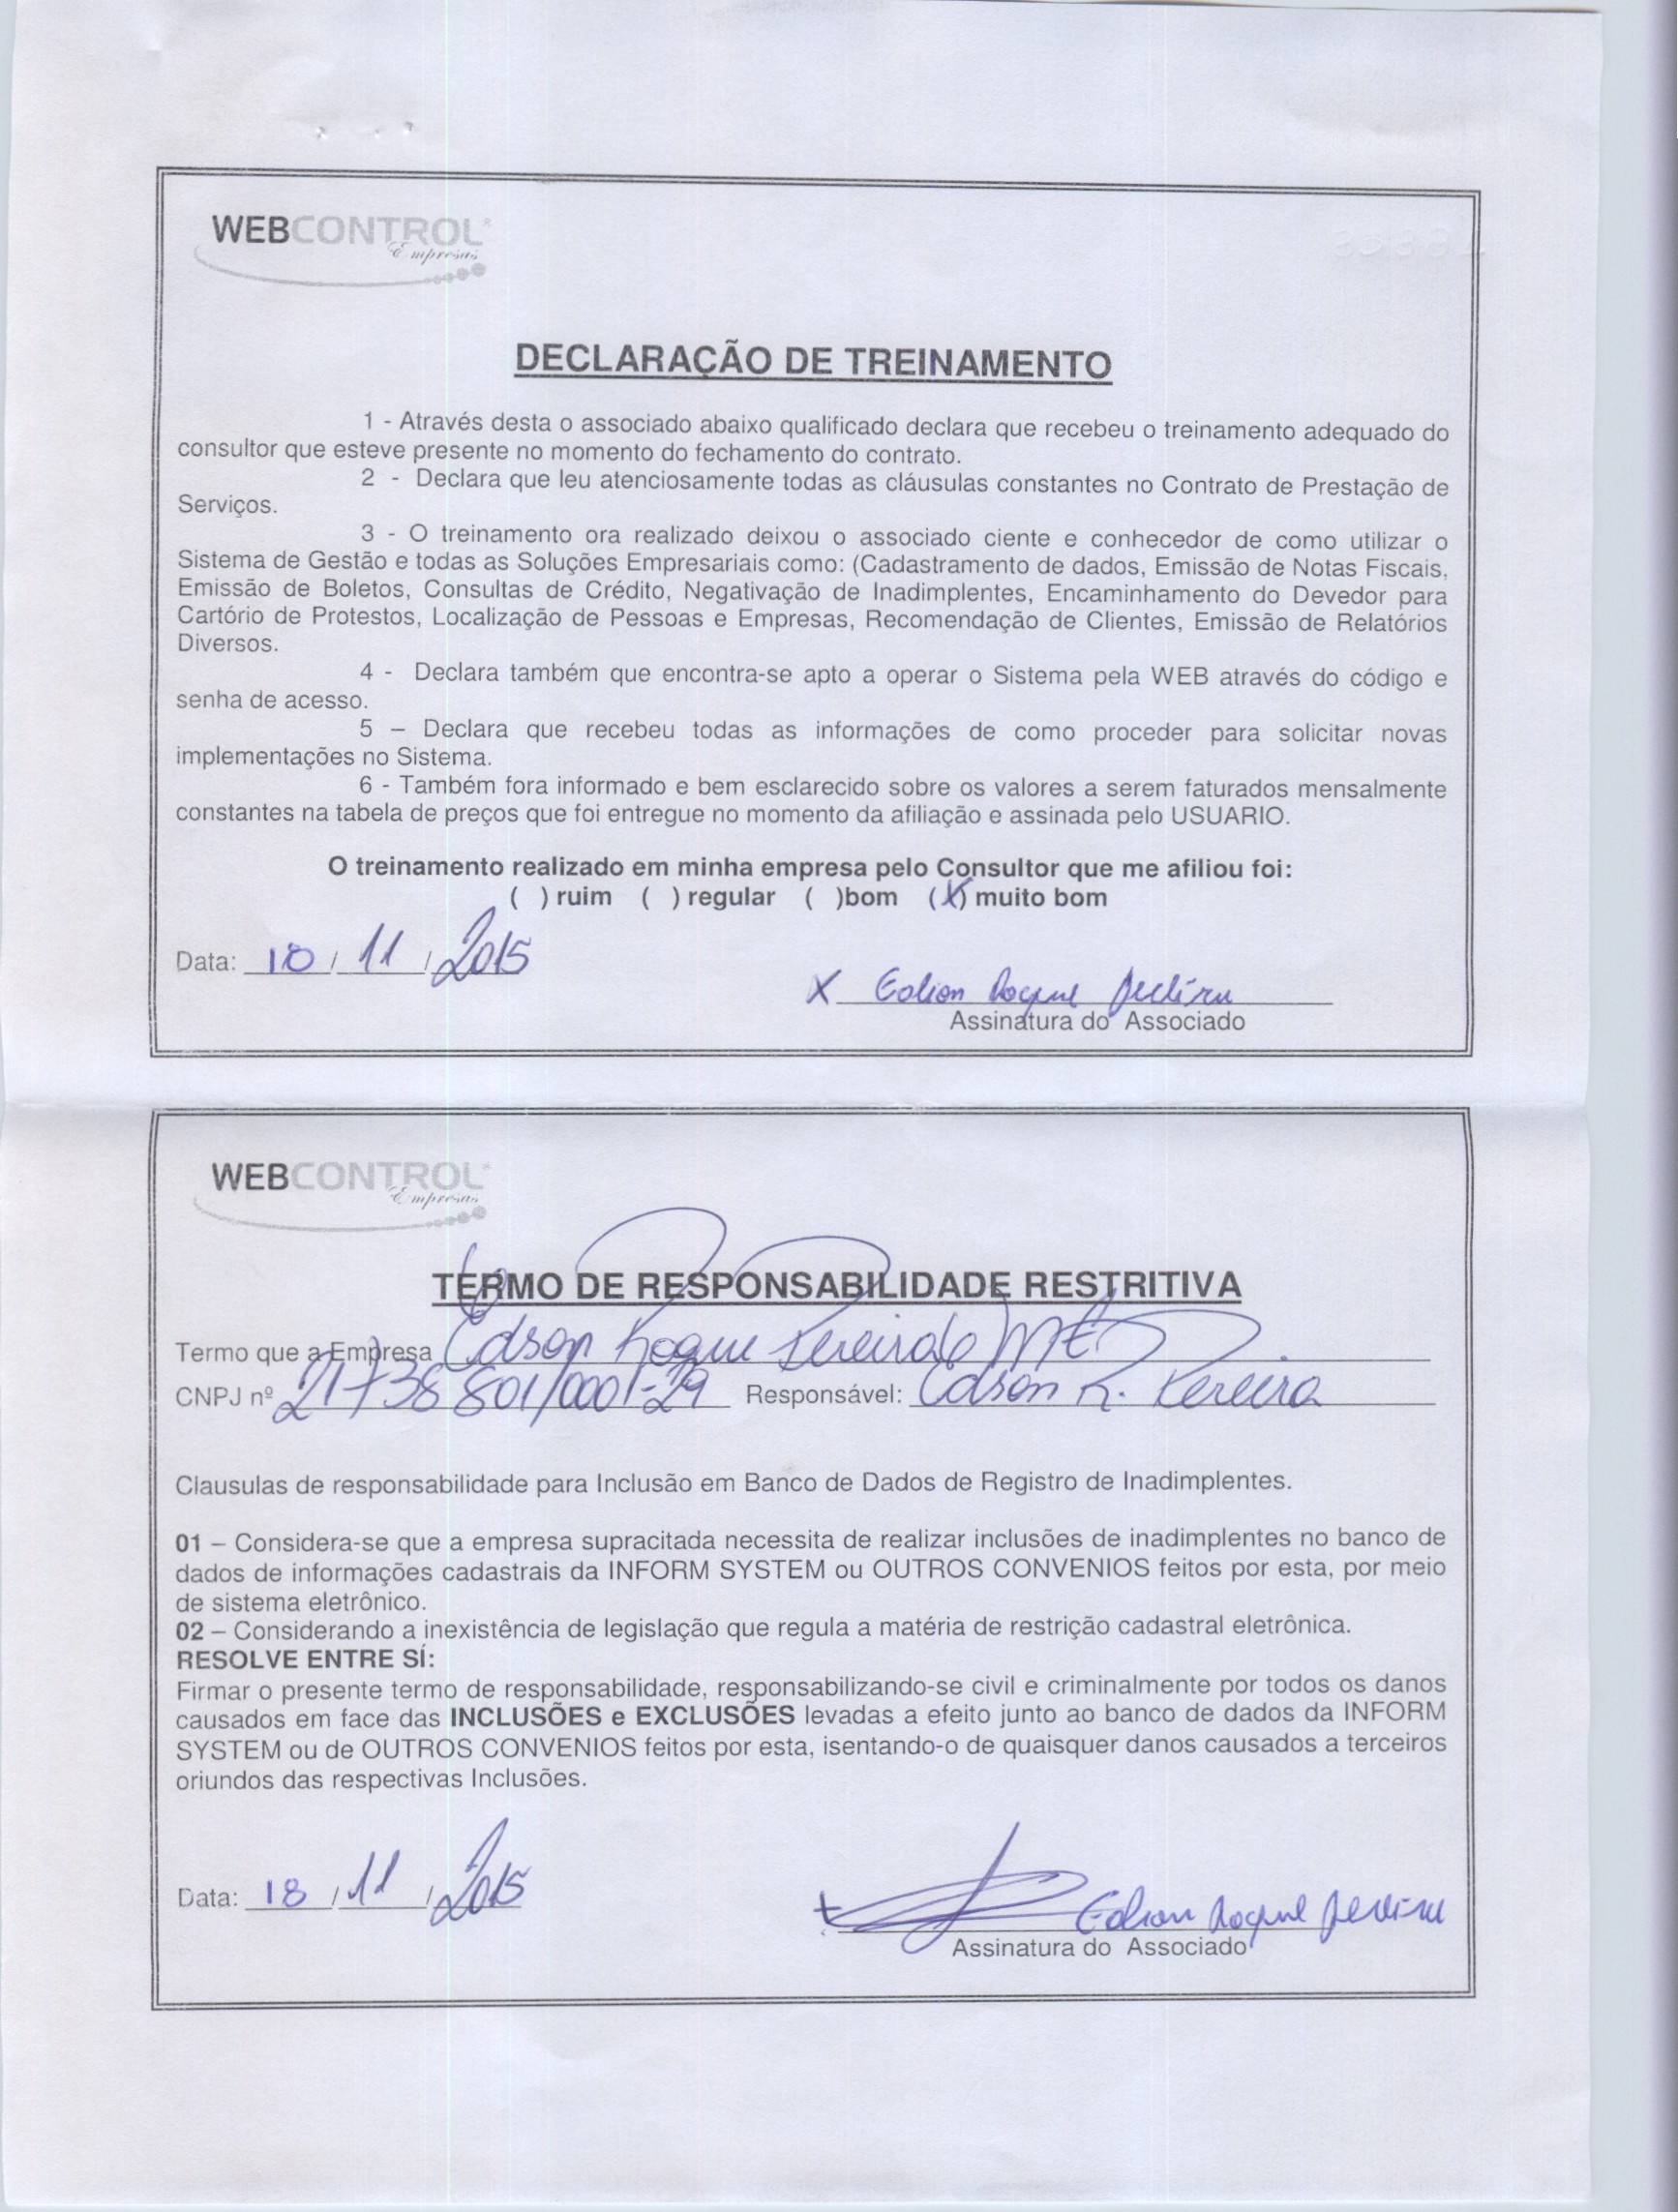 WEBCONTROL
Empresas
DECLARAÇÃO DE TREINAMENTO
1 - Através desta o associado abaixo qualificado declara que recebeu o treinamento adequado do
consultor que esteve presente no momento do fechamento do contrato.
2 - Declara que leu atenciosamente todas as cláusulas constantes no Contrato de Prestação de
Serviços.
3 - O treinamento ora realizado deixou o associado ciente e conhecedor de como utilizar o
Sistema de Gestão e todas as Soluções Empresariais como: (Cadastramento de dados, Emissão de Notas Fiscais,
Emissão de Boletos, Consultas de Crédito, Negativação de Inadimplentes, Encaminhamento do Devedor para
Cartório de Protestos, Localização de Pessoas e Empresas, Recomendação de Clientes, Emissão de Relatórios
Diversos.
4 - Declara também que encontra-se apto a operar o Sistema pela WEB através do código e
senha de acesso.
5 – Declara que recebeu todas as informações de como proceder para solicitar novas
implementações no Sistema.
6 - Também fora informado e bem esclarecido sobre os valores a serem faturados mensalmente
constantes na tabela de preços que foi entregue no momento da afiliação e assinada pelo USUARIO.
O treinamento realizado em minha empresa pelo Consultor que me afiliou foi:
( ) ruim ( ) regular ( )bom (X) muito bom
Data: 18 / 11 / 2015
X Edson Roque Pereira
Assinatura do Associado
WEBCONTROL
Empresas
TERMO DE RESPONSABILIDADE RESTRITIVA
Termo que a Empresa Edson Roque Pereira ME
CNPJ nº 21738801/0001-29 Responsável: Edson R. Pereira
Clausulas de responsabilidade para Inclusão em Banco de Dados de Registro de Inadimplentes.
01 – Considera-se que a empresa supracitada necessita de realizar inclusões de inadimplentes no banco de
dados de informações cadastrais da INFORM SYSTEM ou OUTROS CONVENIOS feitos por esta, por meio
de sistema eletrônico.
02 – Considerando a inexistência de legislação que regula a matéria de restrição cadastral eletrônica.
RESOLVE ENTRE SÍ:
Firmar o presente termo de responsabilidade, responsabilizando-se civil e criminalmente por todos os danos
causados em face das INCLUSÕES e EXCLUSÕES levadas a efeito junto ao banco de dados da INFORM
SYSTEM ou de OUTROS CONVENIOS feitos por esta, isentando-o de quaisquer danos causados a terceiros
oriundos das respectivas Inclusões.
Data: 18 / 11 / 2015
Edson Roque Pereira
Assinatura do Associado